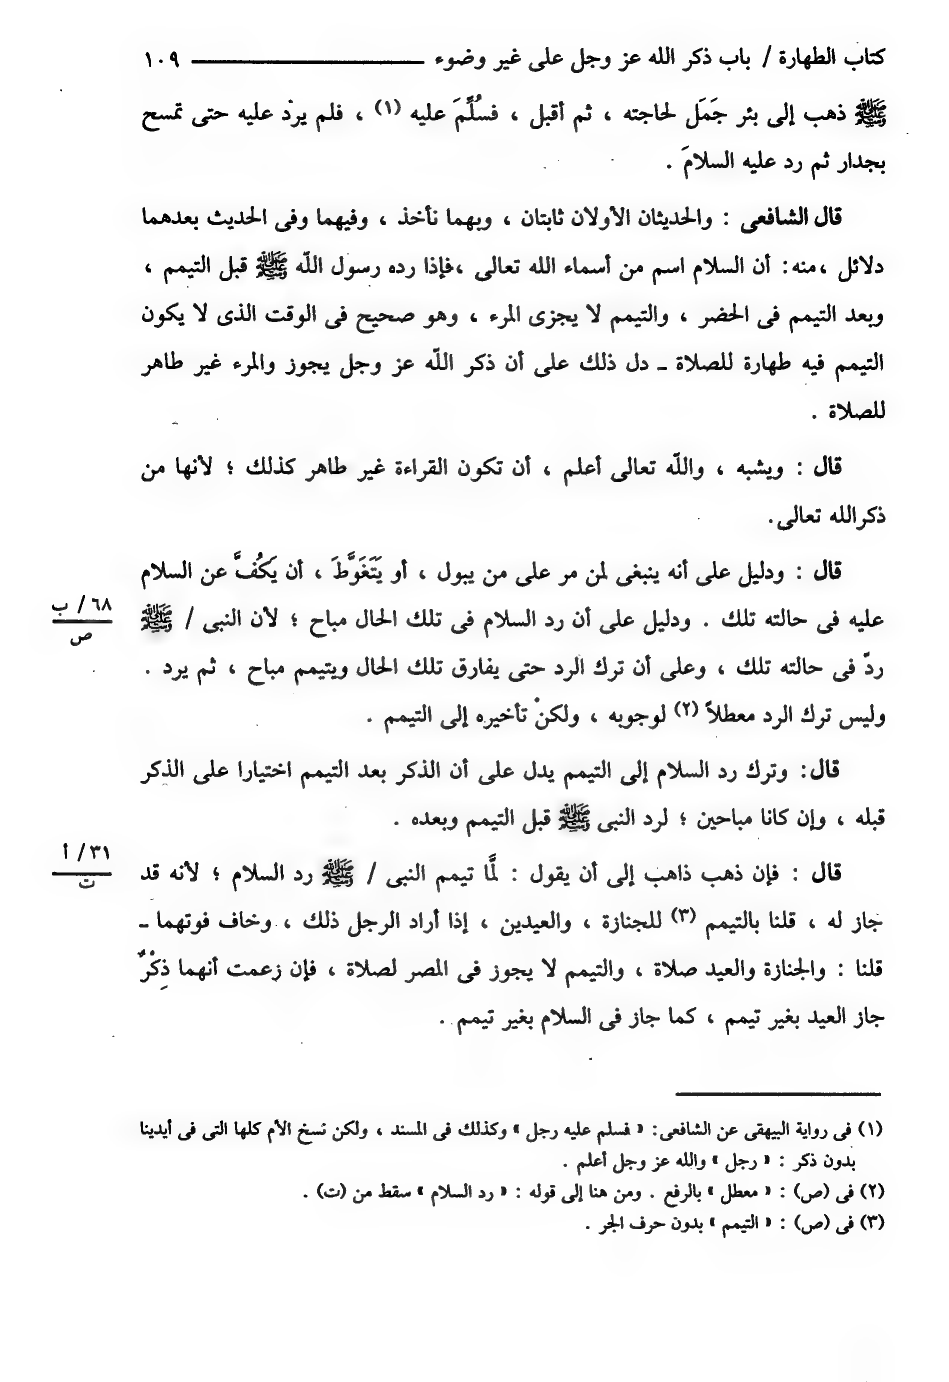 كتاب الطهارة / باب ذكر الله عز وجل على غير وضوء ــــــــــ ١٠٩
ﷺ ذهب إلى بئر جَمَل لحاجته ، ثم أقبل ، فسُلِّمَ عليه (١) ، فلم يردْ عليه حتى تمسح
بجدار ثم رد عليه السلامَ .
قال الشافعى : والحديثان الأولان ثابتان ، وبهما نأخذ ، وفيهما وفى الحديث بعدهما
دلائل ،منه: أن السلام اسم من أسماء الله تعالى ،فإذا رده رسول اللّه ﷺ قبل التيمم ،
وبعد التيمم فى الحضر ، والتيمم لا يجزى المرء ، وهو صحيح فى الوقت الذى لا يكون
التيمم فيه طهارة للصلاة ـ دل ذلك على أن ذكر اللّه عز وجل يجوز والمرء غير طاهر
للصلاة .
قال : ويشبه ، واللّه تعالى أعلم ، أن تكون القراءة غير طاهر كذلك ؛ لأنها من
ذكرالله تعالى.
قال : ودليل على أنه ينبغى لمن مر على من يبول ، أو يَتَغَوَّطَ ، أن يَكُفَّ عن السلام
عليه فى حالته تلك . ودليل على أن رد السلام فى تلك الحال مباح ؛ لأن النبى / ﷺ
٦٨/ ب
ص
ردّ فى حالته تلك ، وعلى أن ترك الرد حتى يفارق تلك الحال ويتيمم مباح ، ثم يرد .
وليس ترك الرد معطلاً (٢) لوجوبه ، ولكنْ تأخيره إلى التيمم .
قال: وترك رد السلام إلى التيمم يدل على أن الذكر بعد التيمم اختيارا على الذكر
قبله ، وإن كانا مباحين ؛ لرد النبى ﷺ قبل التيمم وبعده .
قال : فإن ذهب ذاهب إلى أن يقول : لمَّا تيمم النبى / ﷺ رد السلام ؛ لأنه قد
٣١/ أ
ت
جاز له ، قلنا بالتيمم (٣) للجنازة ، والعيدين ، إذا أراد الرجل ذلك ، وخاف فوتهما ـ
قلنا : والجنازة والعيد صلاة ، والتيمم لا يجوز فى المصر لصلاة ، فإن زعمت أنهما ذِكْرٌ
جاز العيد بغير تيمم ، كما جاز فى السلام بغير تيمم .
(١) فى رواية البيهقى عن الشافعى: « فسلم عليه رجل » وكذلك فى المسند ، ولكن نسخ الأم كلها التى فى أيدينا
بدون ذكر : « رجل » والله عز وجل أعلم .
(٢) فى (ص) : « معطل » بالرفع . ومن هنا إلى قوله : « رد السلام » سقط من (ت) .
(٣) فى (ص) : « التيمم » بدون حرف الجر .